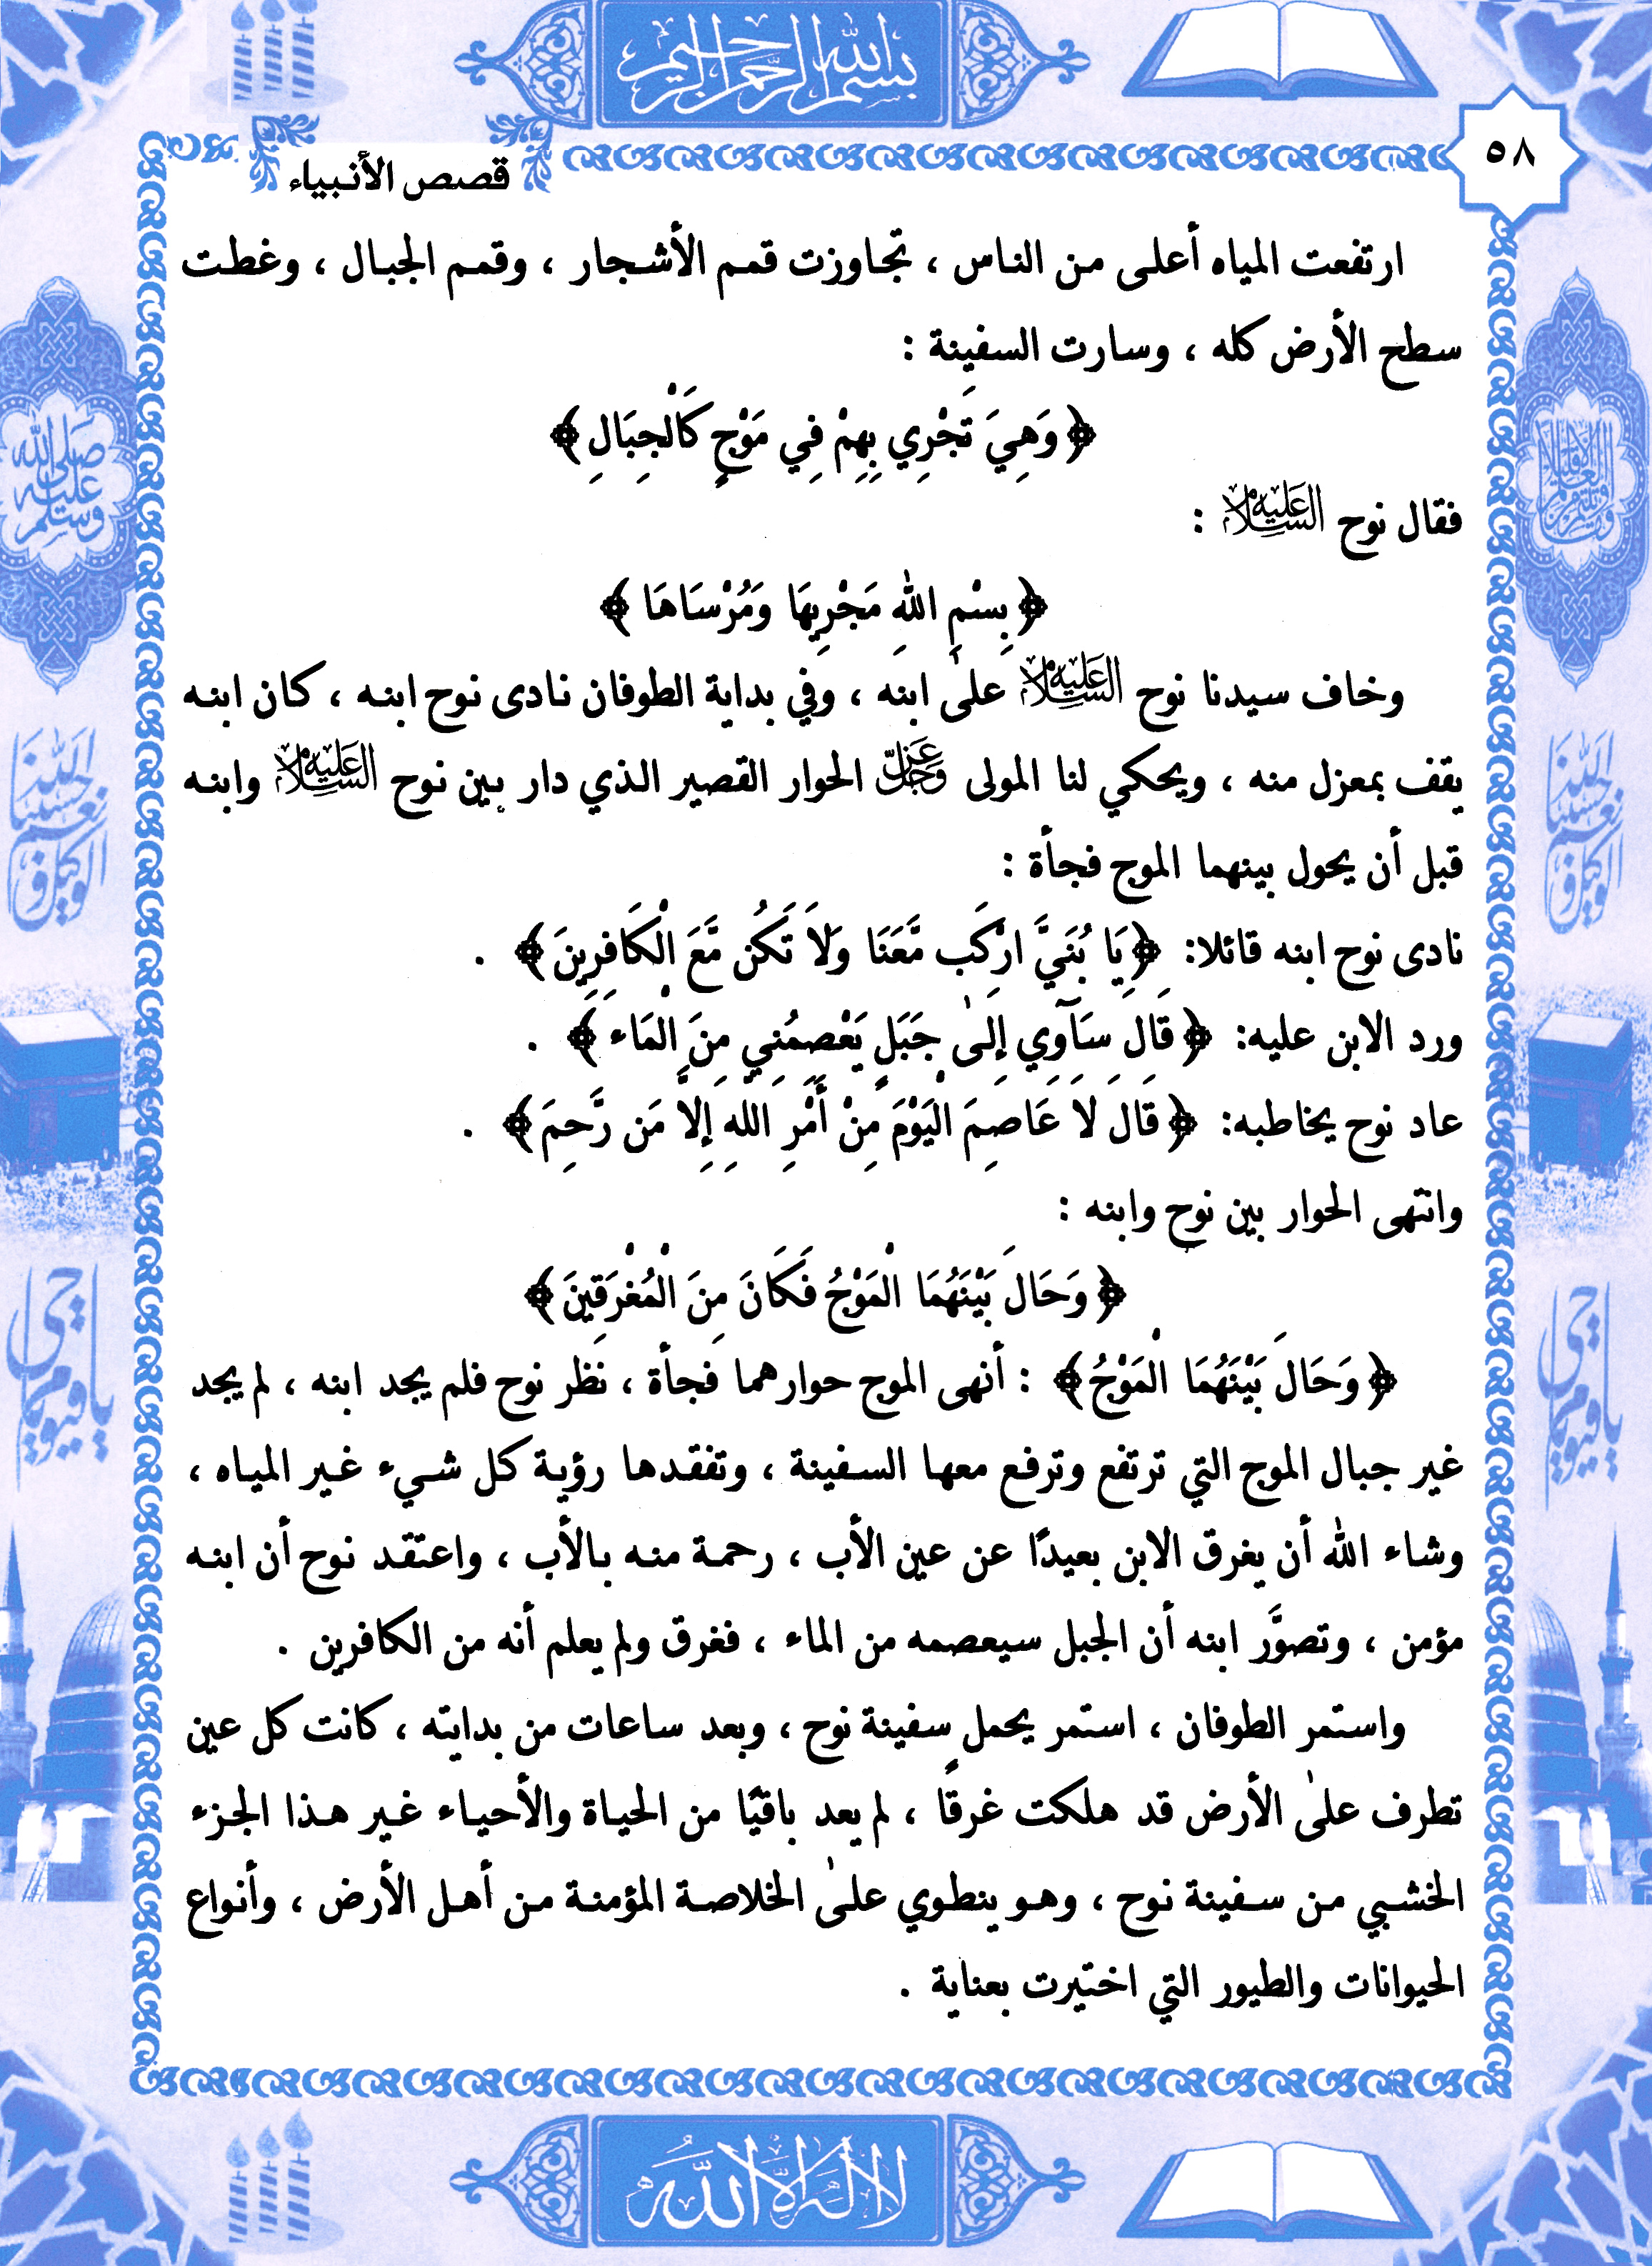 بسم الله الرحمن الرحيم
٥٨
قصص الأنبياء
ارتفعت المياه أعلى من الناس ، تجاوزت قمم الأشجار ، وقمم الجبال ، وغطت
سطح الأرض كله ، وسارت السفينة :
﴿وَهِيَ تَجْرِي بِهِمْ فِي مَوْجٍ كَالْجِبَالِ﴾
فقال نوح عليه السلام :
﴿بِسْمِ اللهِ مَجْرِيهَا وَمُرْسَاهَا ﴾
وخاف سيدنا نوح عليه السلام على ابنه ، وفي بداية الطوفان نادى نوح ابنه ، كان ابنه
يقف بمعزل منه ، ويحكي لنا المولى عز وجل الحوار القصير الذي دار بين نوح عليه السلام وابنه
قبل أن يحول بينهما الموج فجأة :
نادى نوح ابنه قائلا: ﴿يَا بُنَيَّ ارْكَب مَّعَنَا وَلاَ تَكُن مَّعَ الْكَافِرِينَ﴾ .
ورد الابن عليه: ﴿قَالَ سَآوِي إِلَىٰ جَبَلٍ يَعْصِمُنِي مِنَ الْمَاء﴾ .
عاد نوح يخاطبه: ﴿قَالَ لاَ عَاصِمَ الْيَوْمَ مِنْ أَمْرِ اللهِ إِلاَّ مَن رَّحِمَ﴾ .
وانتهى الحوار بين نوح وابنه :
﴿وَحَالَ بَيْنَهُمَا الْمَوْجُ فَكَانَ مِنَ الْمُغْرَقِينَ﴾
﴿وَحَالَ بَيْنَهُمَا الْمَوْجُ﴾ : أنهى الموج حوارهما فجأة ، نظر نوح فلم يجد ابنه ، لم يجد
غير جبال الموج التي ترتفع وترفع معها السفينة ، وتفقدها رؤية كل شيء غير المياه ،
وشاء الله أن يغرق الابن بعيدًا عن عين الأب ، رحمة منه بالأب ، واعتقد نوح أن ابنه
مؤمن ، وتصوَّر ابنه أن الجبل سيعصمه من الماء ، فغرق ولم يعلم أنه من الكافرين .
واستمر الطوفان ، استمر يحمل سفينة نوح ، وبعد ساعات من بدايته ، كانت كل عين
تطرف علىٰ الأرض قد هلكت غرقًا ، لم يعد باقيًا من الحياة والأحياء غير هذا الجزء
الخشبي من سفينة نوح ، وهو ينطوي علىٰ الخلاصة المؤمنة من أهل الأرض ، وأنواع
الحيوانات والطيور التي اختيرت بعناية .
لا إله إلا الله
صلى الله عليه وسلم
حسبنا الله ونعم الوكيل
حسبنا الله ونعم الوكيل
يا حي يا قيوم
يا حي يا قيوم